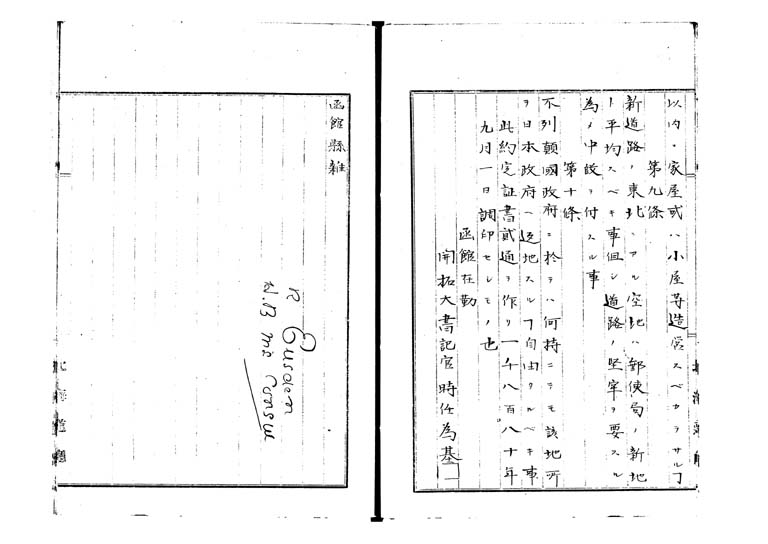 以内ニ家屋或ハ小屋等造営スベカラサルヿ
第九條
新道路ノ東北ニアル空地ハ郵便局ノ新地
ト平均スベキ事但シ道路ノ堅牢ヲ要スル
為メ中設ヲ付スル事
第十條
不列顛國政府ニ於テハ何時ニテモ該地所
ヲ日本政府ヘ返地スルヿ自由タルベキ事
此約定証書貳通ヲ作リ一千八百八十年
九月一日調印セシモノ也
函館在勤
開拓大書記官時任為基
函館縣雑
R Eusden
H.B.M's Consul